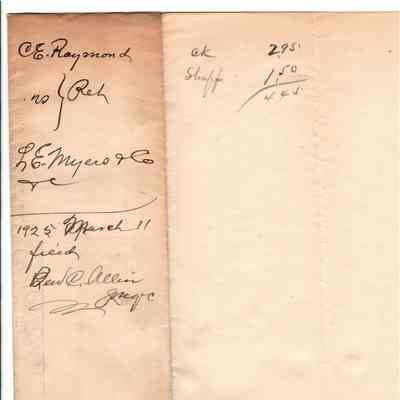 C.E. Raymond
no } Reh
L.E. Myers & Co
& c
1925 March 11
filed
Ben C. Allin
ck 2.95
Shipp 1.50
4.45